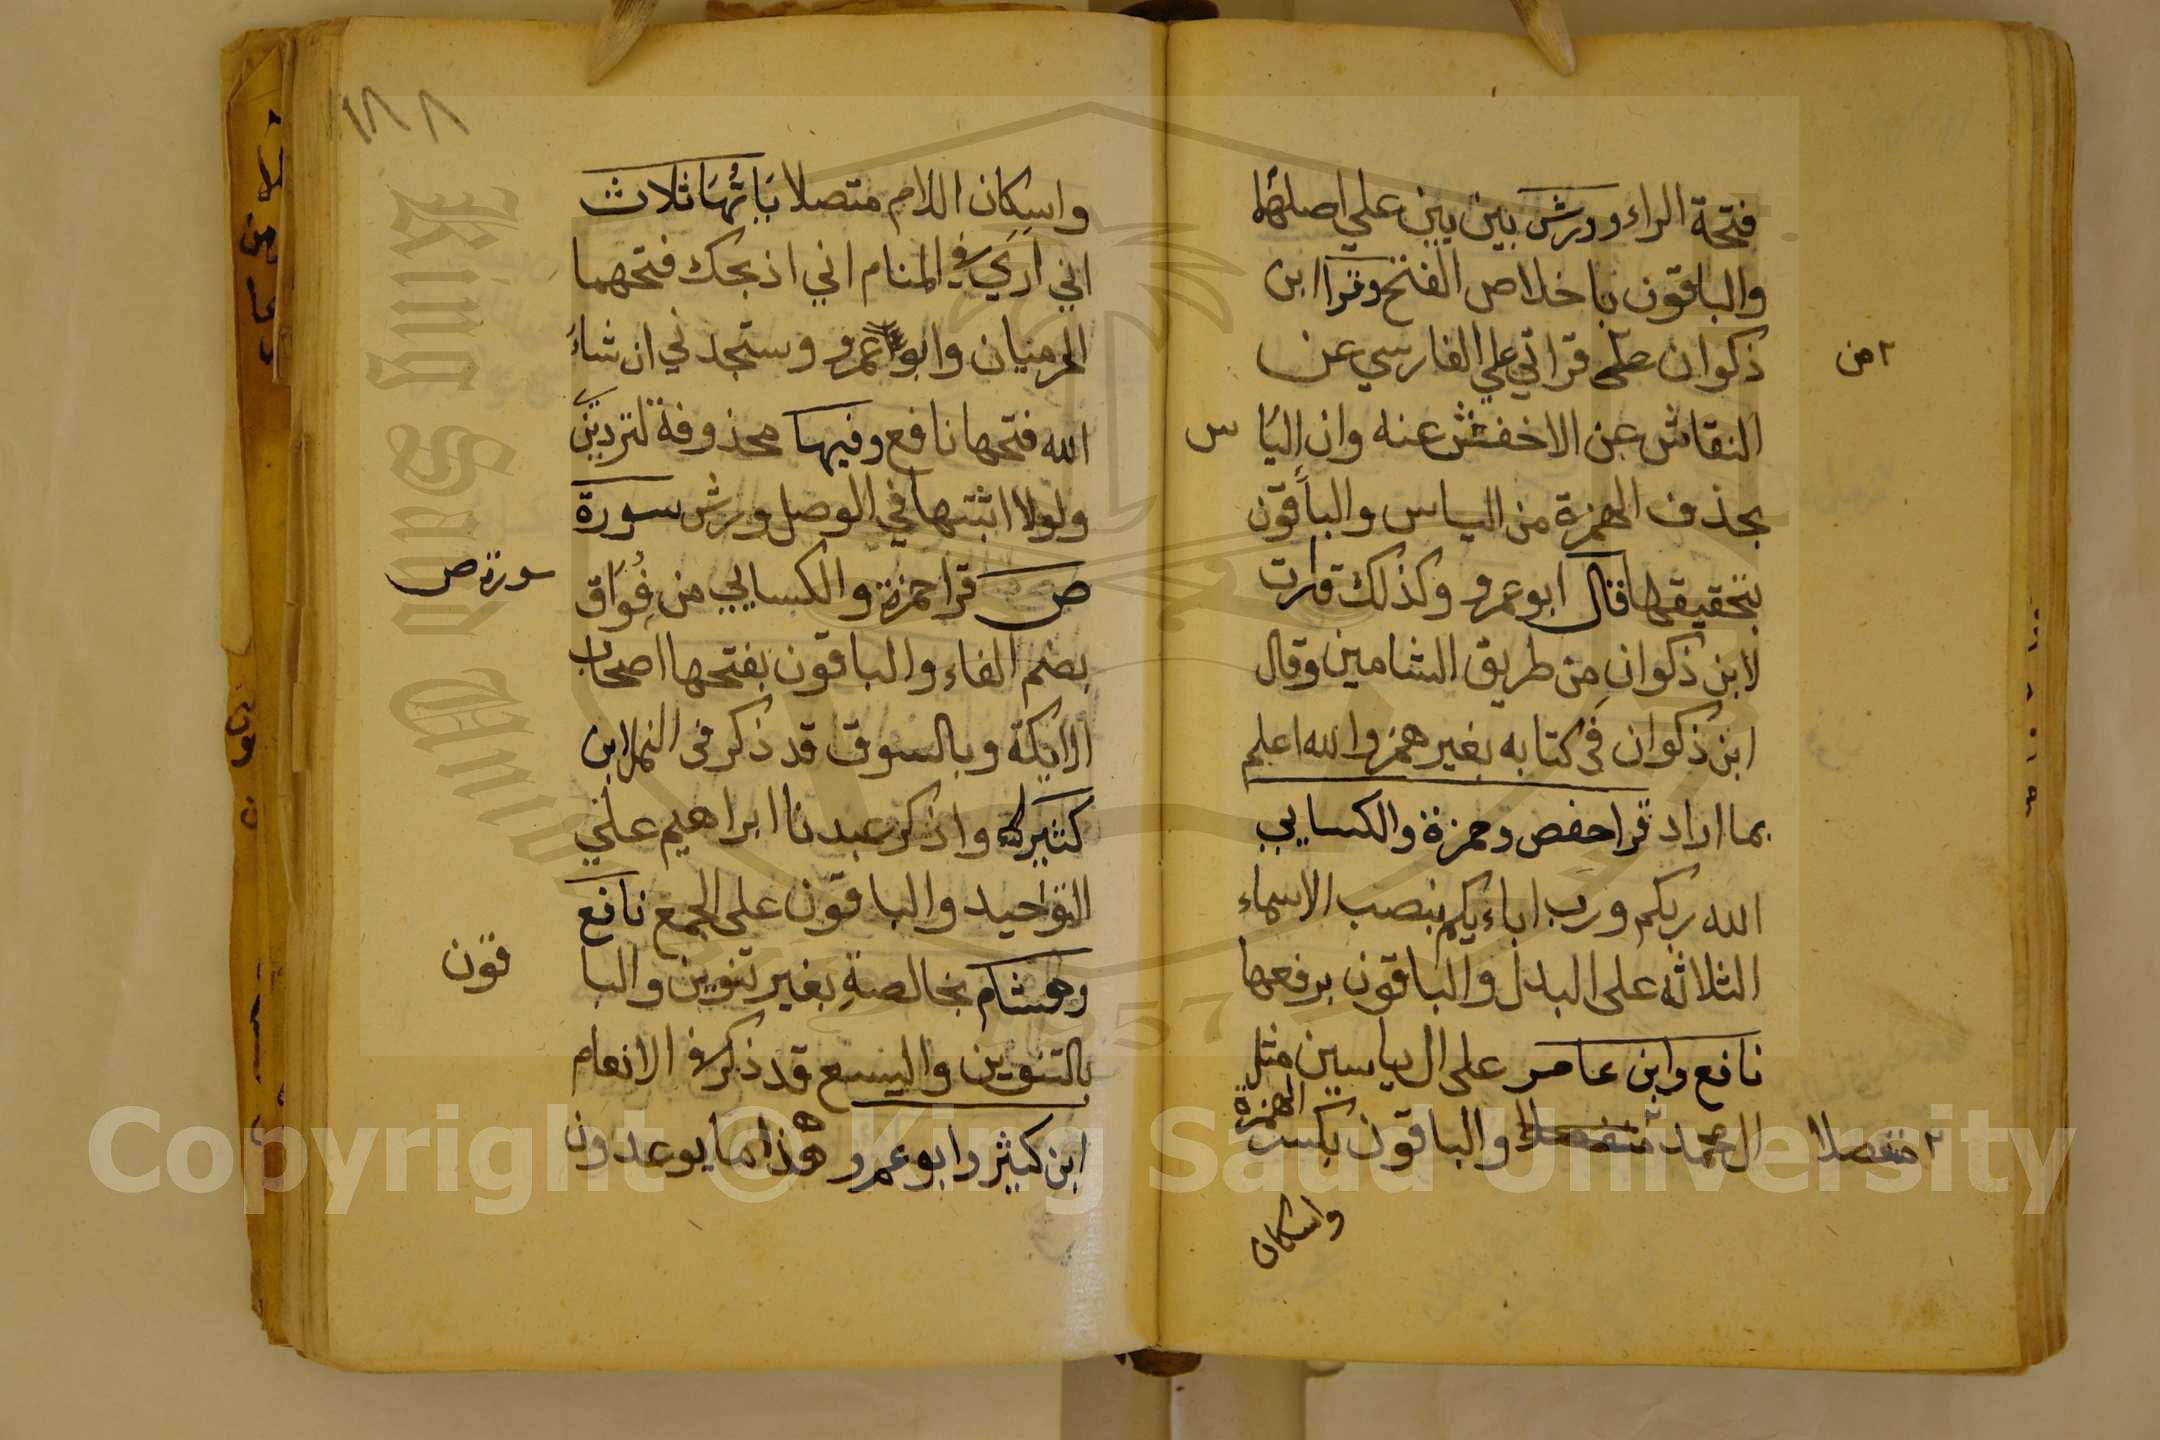 فتحة الراء وورش بين بين علي اصلهما
والباقون باخلاص الفتح وقرا ابن
ذكوان قراتي علي الفارسي عن
٢ من
النقاش عن الاخفش عنه وان اليا س
بحذف الهمزة من الياس والباقون
بتحقيقها قال ابو عمرو وكذلك قرات
لابن ذكوان من طريق الشامين وقال
ابن ذكوان في كتابه بغير همز والله اعلم
بما اراد قرا حفص وحمزة والكسايي
الله ربكم ورب اباءيكم بنصب الاسماء
الثلاثة على البدل والباقون برفعها
نافع وابن عامر على ال ياسين مثل
ال محمد والباقون بكسر الهمزة
٢ منفصلا
واسكان
١٨٨
واسكان اللام متصلا ياتها ثلاث
اني اري في المنام اني اذبحك فتحهما
الحرميان وابو عمرو وستجدني ان شاء
الله فتحها نافع وفيها محذوفة لتردين
ولولا اثبتها في الوصل ورش سورة
سورة ص
ص قرا حمزة والكسايي من فواق
بضم الفاء والباقون بفتحها اصحاب
الايكة وبالسوق قد ذكر في النمل ابن
كثير واذكر عبدنا ابراهيم علي
التوحيد والباقون على الجمع نافع
وهشام بخالصة بغير تنوين والبا
قون
بالتنوين واليسع قد ذكر في الانعام
ابن كثير وابو عمرو هذا ما يوعدون
King Saud University
1957
Copyright © King Saud University